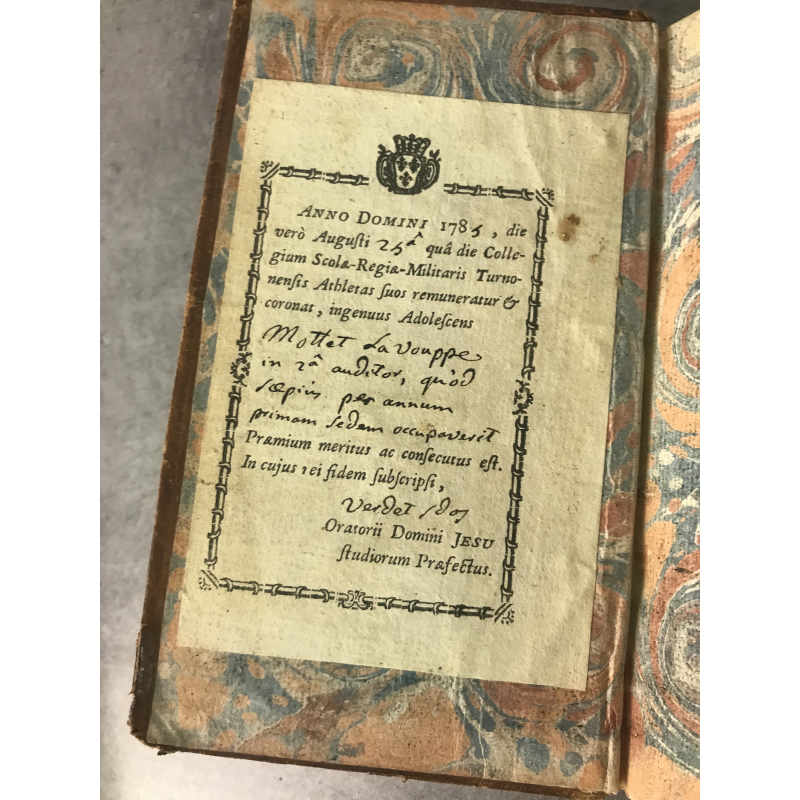 ANNO DOMINI 1785, die
verò Auguſti 25â quâ die Colle-
gium Scolæ-Regiæ-Militaris Turno-
nenſis Athletas ſuos remuneratur &
coronat, ingenuus Adoleſcens
Mottet Lavouppe
in 2â auditor, quòd
sæpius per annum
primam sedem occupaverit
Præmium meritus ac conſecutus eſt.
In cujus rei fidem ſubſcripſi,
Verdet
Oratorii Domini JESU
ſtudiorum Præfectus.